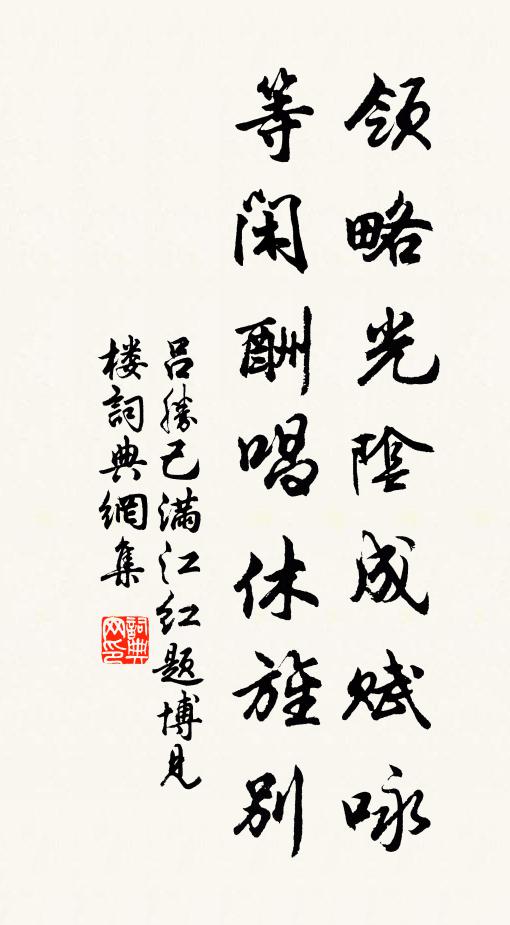 领略光陰成赋咏
等闲酬唱休旌别
吕勝己满江红题博見
楼詞典網集
詞典
网印